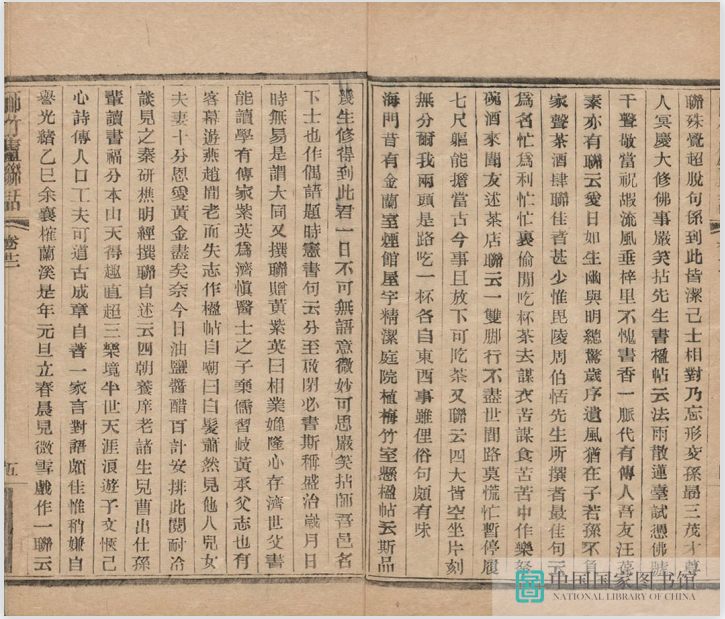 聯殊覺超脫句係到此皆潔己士相對乃忘形交孫晶三茂才尊
人冥慶大修佛事嚴笑拈先生書楹帖云法雨散蓮臺試憑佛號
千聲敬當祝嘏流風垂梓里不愧書香一脈代有傳人吾友汪葆
素亦有聯云愛日如生幽與明總驚歲序遺風猶在子若孫不負
家聲茶酒肆聯佳者甚少惟毘陵周伯恬先生所撰者最佳句云
爲名忙爲利忙忙裏偷閒吃杯茶去謀衣苦謀食苦苦中作樂
碗酒來聞友述茶店聯云一雙脚行不盡世間路莫慌忙暫停履
七尺軀能擔當古今事且放下可吃茶又聯云四大皆空坐片刻
無分爾我兩頭是路吃一杯各自東西事雖俚俗句頗有味
海門昔有金蘭室煙館屋宇精潔庭院植梅竹室懸楹帖云斯品
幾生修得到此君一日不可無語意微妙可思嚴笑拈師吾邑名
下士也作偶語題時憲書句云分至啟閉必書斯稱盛治歲月日
時無易是謂大同又撰聯贈黃紫英曰相業漁隆心存濟世父書
能讀學有傳家紫英爲濟愼醫士之子棄儒習岐黃承父志也有
客幕遊燕趙間老而失志作楹帖自嘲曰白髮蕭然見他人兒女
夫妻十分恩愛黃金盡矣奈今日油鹽醬醋百計安排此閱耐冷
談見之秦研樵明經撰聯自述云四朝養庠老諸生兒曹出仕孫
輩讀書福分本山天得趣直超三樂境半世天涯浪遊子文愜己
心詩傳人口工夫可道古成章自著一家言對語頗佳惟稍嫌自
譽光緒乙巳余襄榷蘭溪是年元旦立春晨見微雪戲作一聯云
竹廬聯話
卷十二
五
中国国家图书馆
NATIONAL LIBRARY OF CHINA